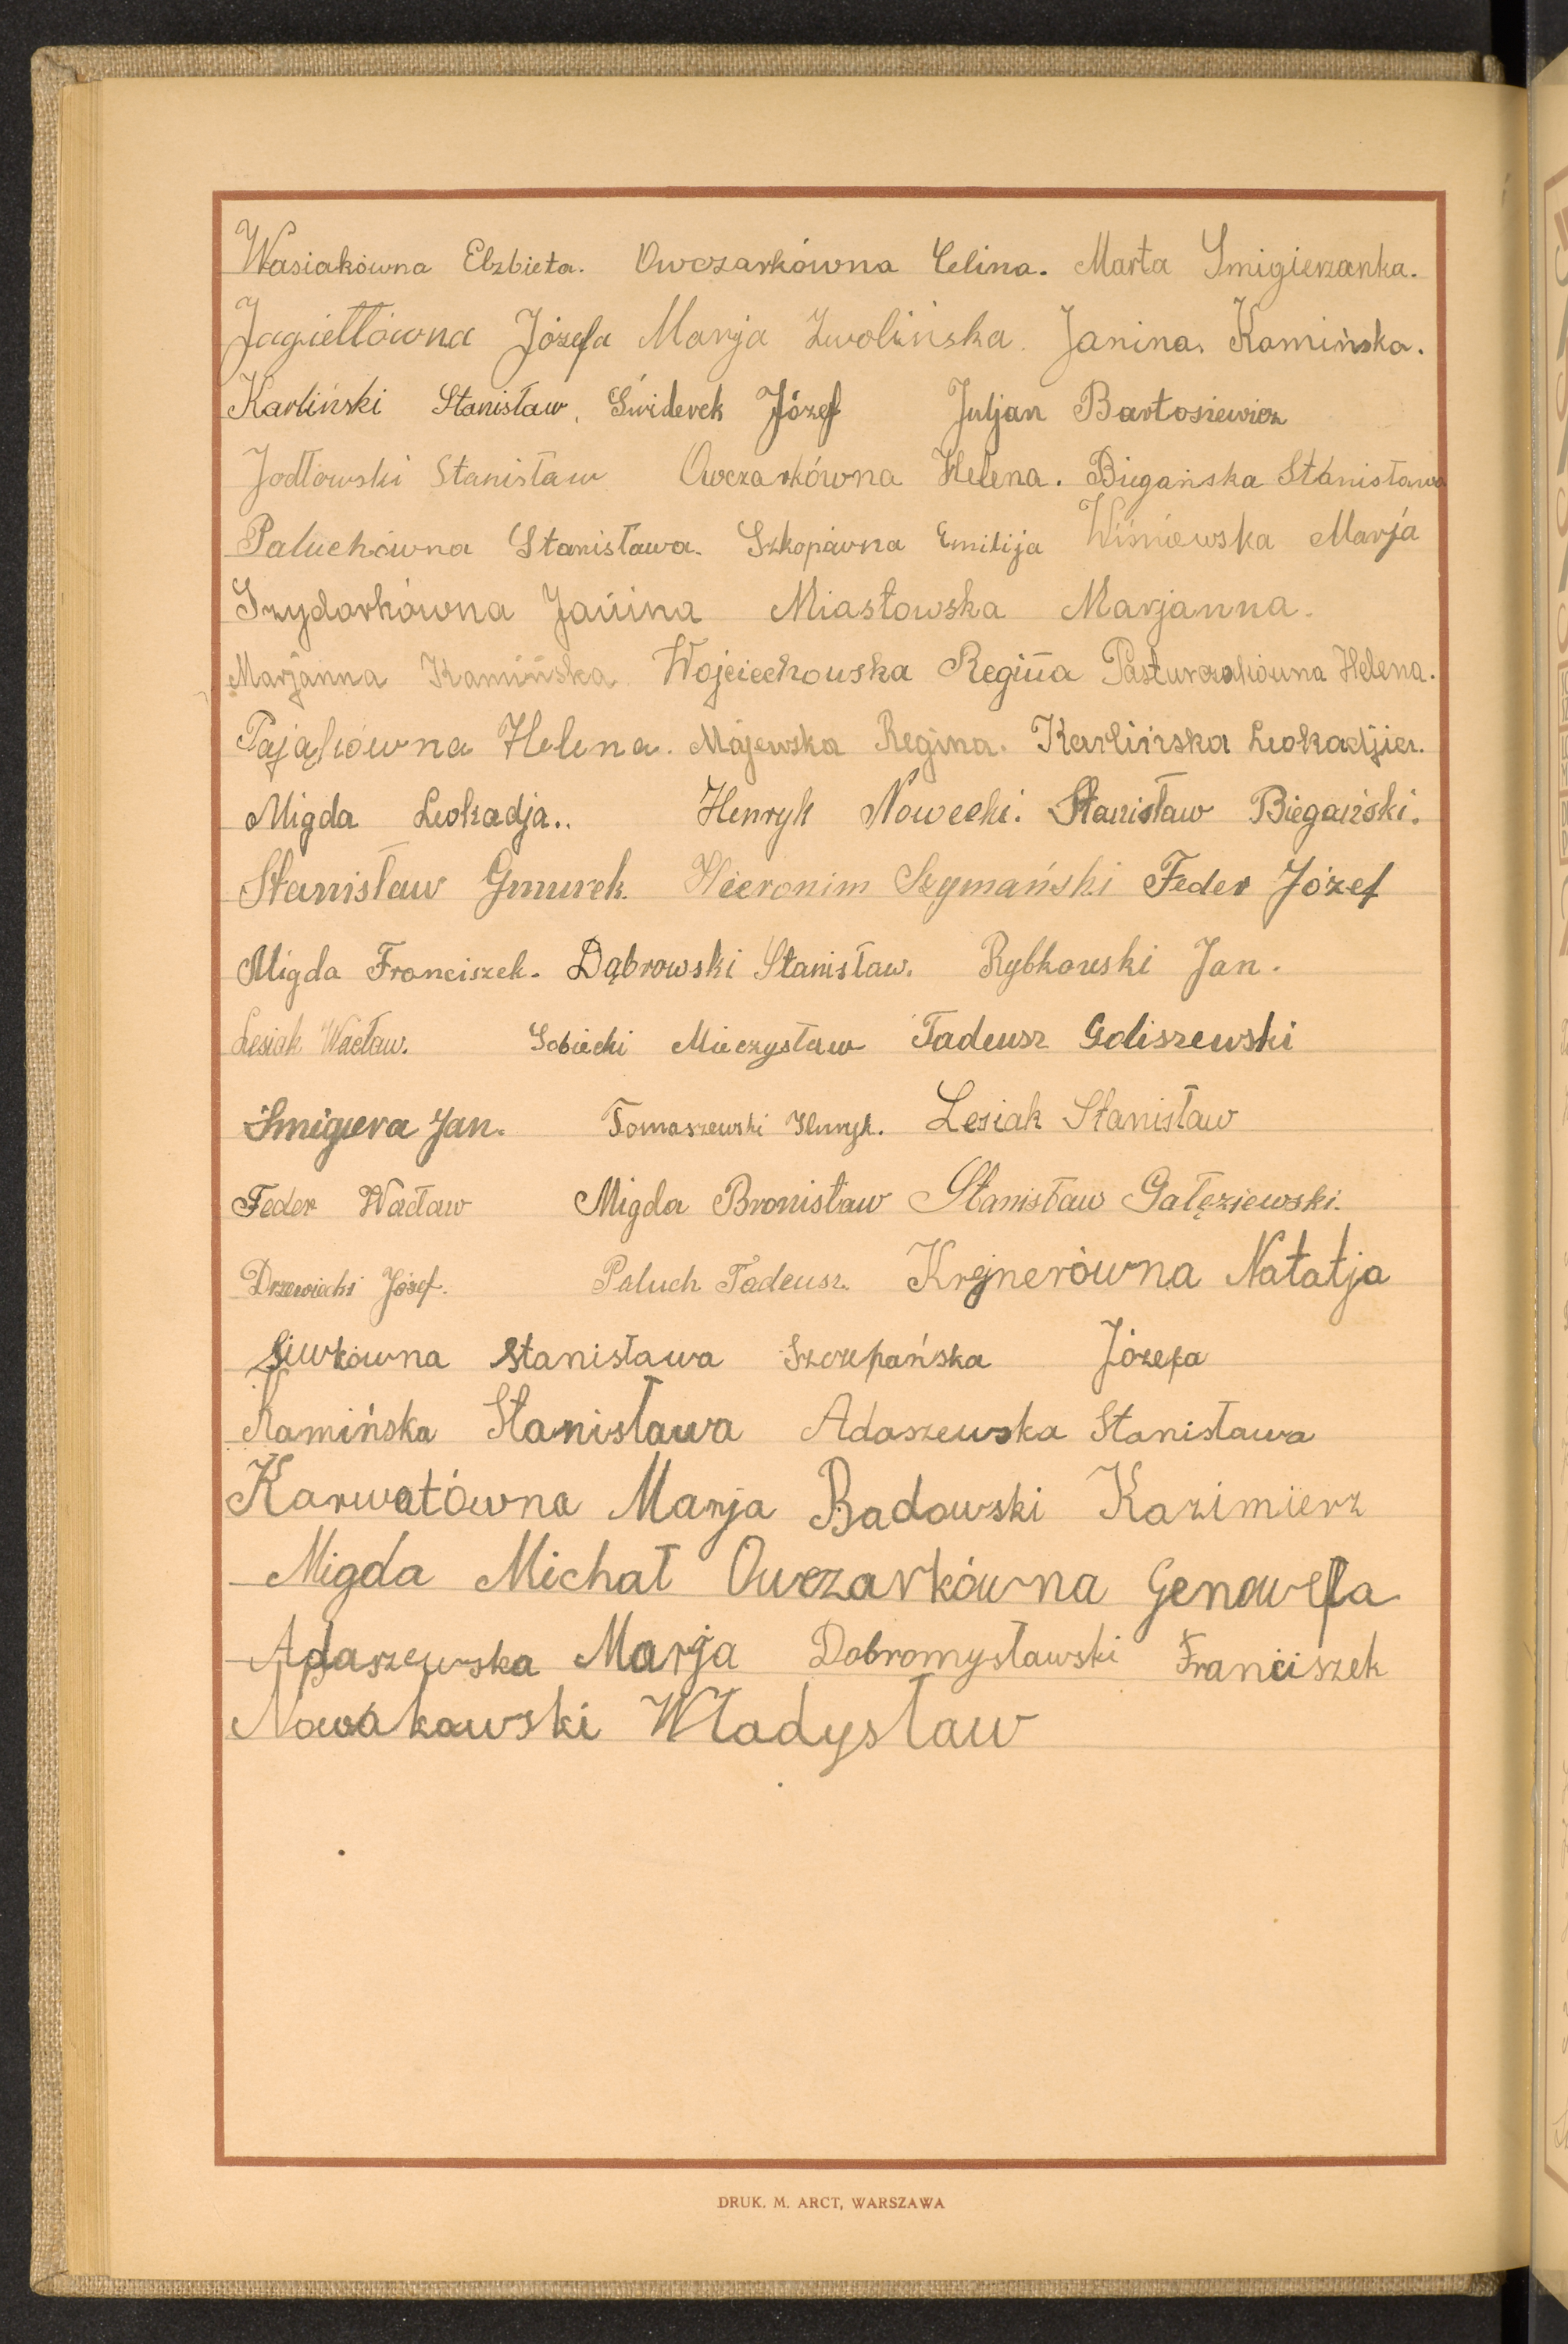 Wasiakówna Elzbieta. Owczarkówna Celina. Marta Smigierzanka.
Jagiełłówna Józefa Marja Zwolińska. Janina. Kamińska.
Karliński Stanisław. Świderek Józef Juljan Bartosiewicz
Jodłowski Stanisław Owczarkówna Helena. Biegańska Stanisława
Paluchówna Stanisława. Szkopówna Emilija Wiśniewska Marja
Szydorkówna Janina Miastowska Marjanna.
Marjanna Kamińska Wojciechouska Regina Pasturczakówna Helena.
Pająkówna Helena. Majewska Regina. Karlińska Leokadija.
Migda Leokadja.. Henryk Nowecki. Stanisław Biegański.
Stanisław Gmurek. Hieronim Szymański Feder Józef
Migda Franciszek. Dąbrowski Stanisław. Rybkowski Jan.
Lesiak Wacław. Sobiecki Mieczysław Tadeusz Goliszewski
Śmigiera Jan. Tomaszewski Henryk. Lesiak Stanisław
Feder Wacław Migda Bronisław Stanisław Gałęziewski.
Drzewiecki Józef. Paluch Tadeusz. Krejnerówna Natatja
Siwkówna Stanisława Szczepańska Józefa
Kamińska Stanisława Adaszewska Stanisława
Karwatówna Marja Badowski Kazimierz
Migda Michał Owczarkówna Genowefa
Adaszewska Marja Dobromysławski Franciszek
Nowakowski Władysław
DRUK. M. ARCT, WARSZAWA